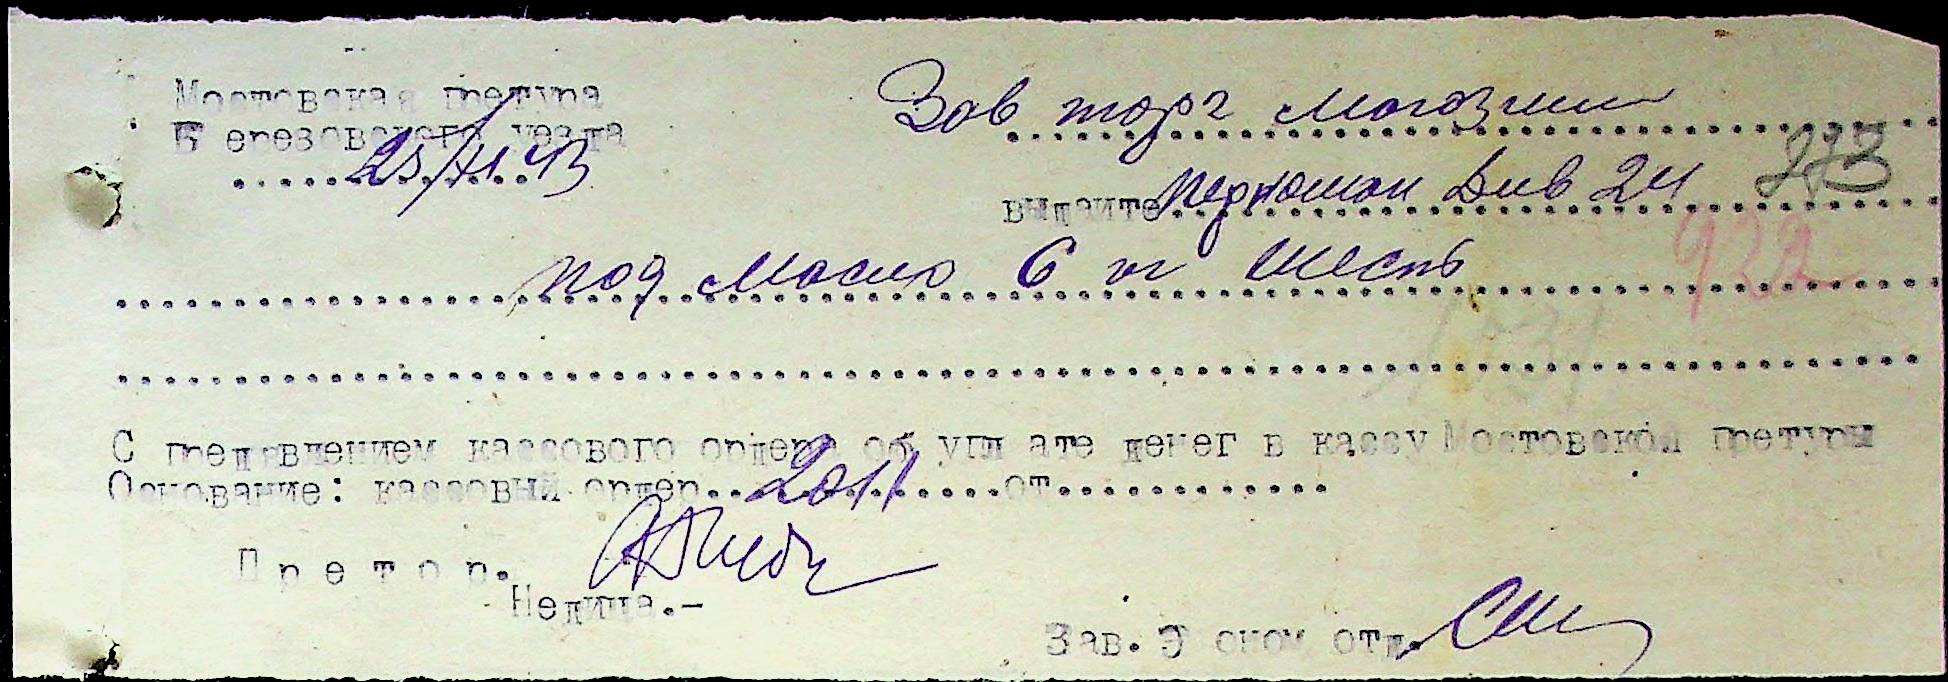 Мостовская претура
Березовского уезда
25/XI 43
Зав торг магозин
223
выдайте Мерпомои Див 24
932
под масло 6 кг шесть
С пред'явлением кассового ордера об упл ате денег в кассу Мостовской претуры
Основание: кассовый ордер..2011..........от.............
П р е т о р.
Нелица.-
Зав. Э оном отд.